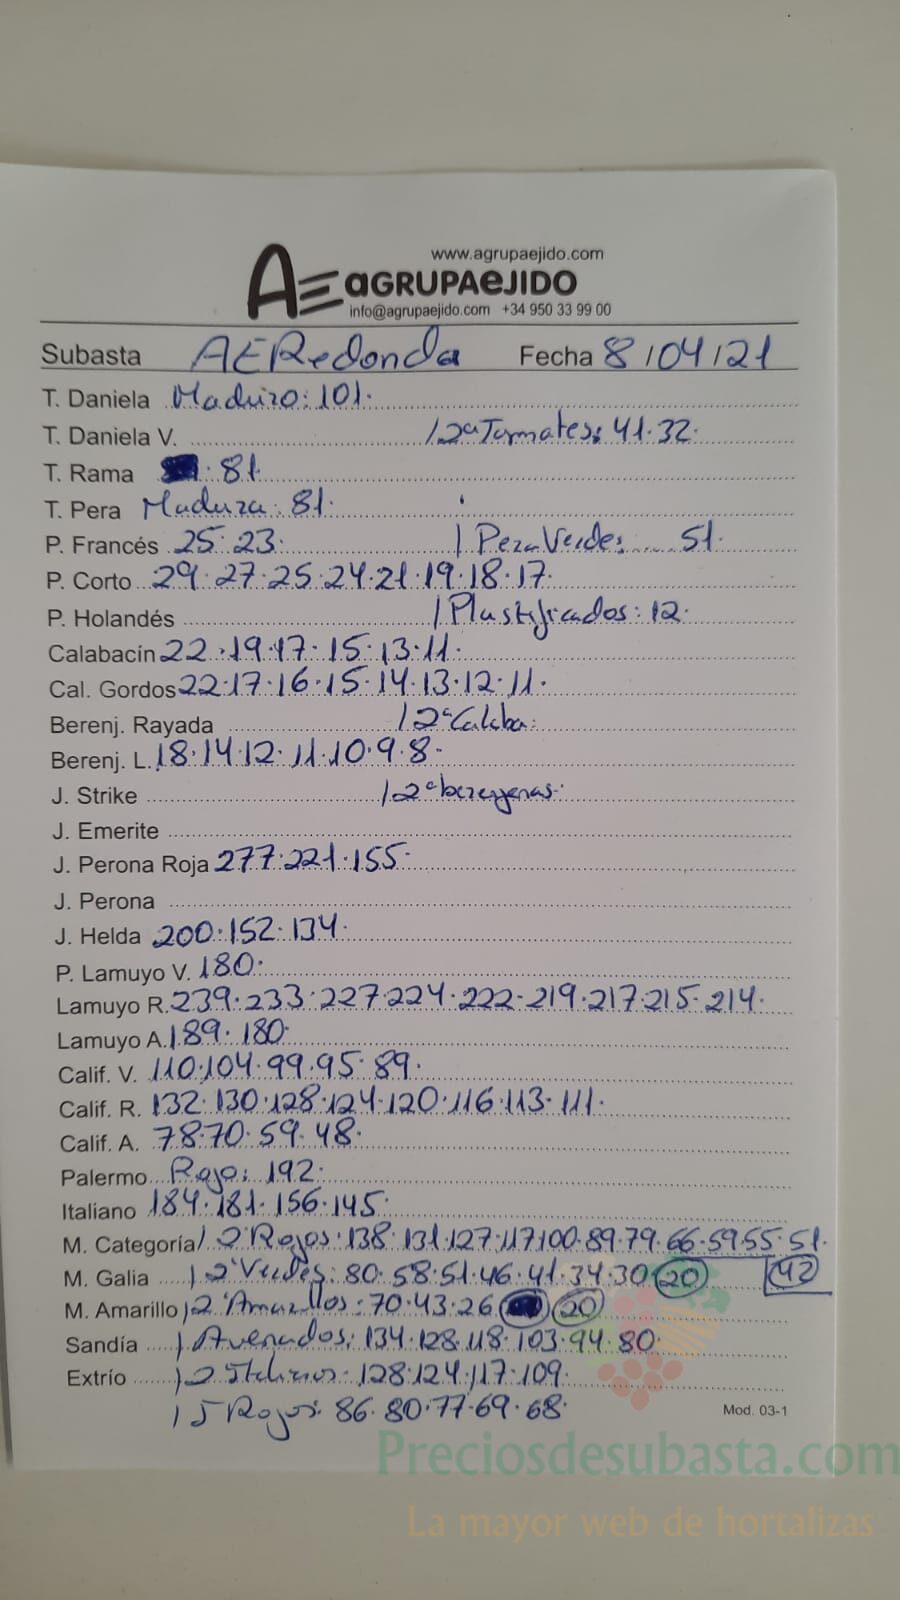 www.agrupaejido.com
AE aGRUPAeJIDO
info@agrupaejido.com +34 950 33 99 00
Subasta AERedonda Fecha 8/04/21
T. Daniela Maduro: 101.
T. Daniela V. /2ª Tomates: 41.32.
T. Rama 81.
T. Pera Madura: 81.
P. Francés 25.23. / Pera Verdes: 51.
P. Corto 29.27.25.24.21.19.18.17.
P. Holandés / Plastificados: 12.
Calabacín 22.19.17.15.13.11.
Cal. Gordos 22.17.16.15.14.13.12.11.
Berenj. Rayada /2ª Calaba:
Berenj. L. 18.14.12.11.10.9.8.
J. Strike /2ª berenjenas:
J. Emerite
J. Perona Roja 277.221.155.
J. Perona
J. Helda 200.152.134.
P. Lamuyo V. 180.
Lamuyo R. 239.233.227.224.222.219.217.215.214.
Lamuyo A. 189.180.
Calif. V. 110.104.99.95.89.
Calif. R. 132.130.128.124.120.116.113.111.
Calif. A. 78.70.59.48.
Palermo Rojo: 192.
Italiano 184.181.156.145.
M. Categoría /2ª Rojos: 138.131.127.117.100.89.79.66.59.55.51.
M. Galia /2ª Verdes: 80.58.51.46.41.34.30. 20 42
M. Amarillo /2ª Amarillos: 70.43.26 20
Sandía / Averiados: 134.128.118.103.94.80.
Extrío /2 Italianos: 128.124.117.109.
/J Rojos: 86.80.77.69.68.
Mod. 03-1
Preciosdesubasta.com
La mayor web de hortalizas